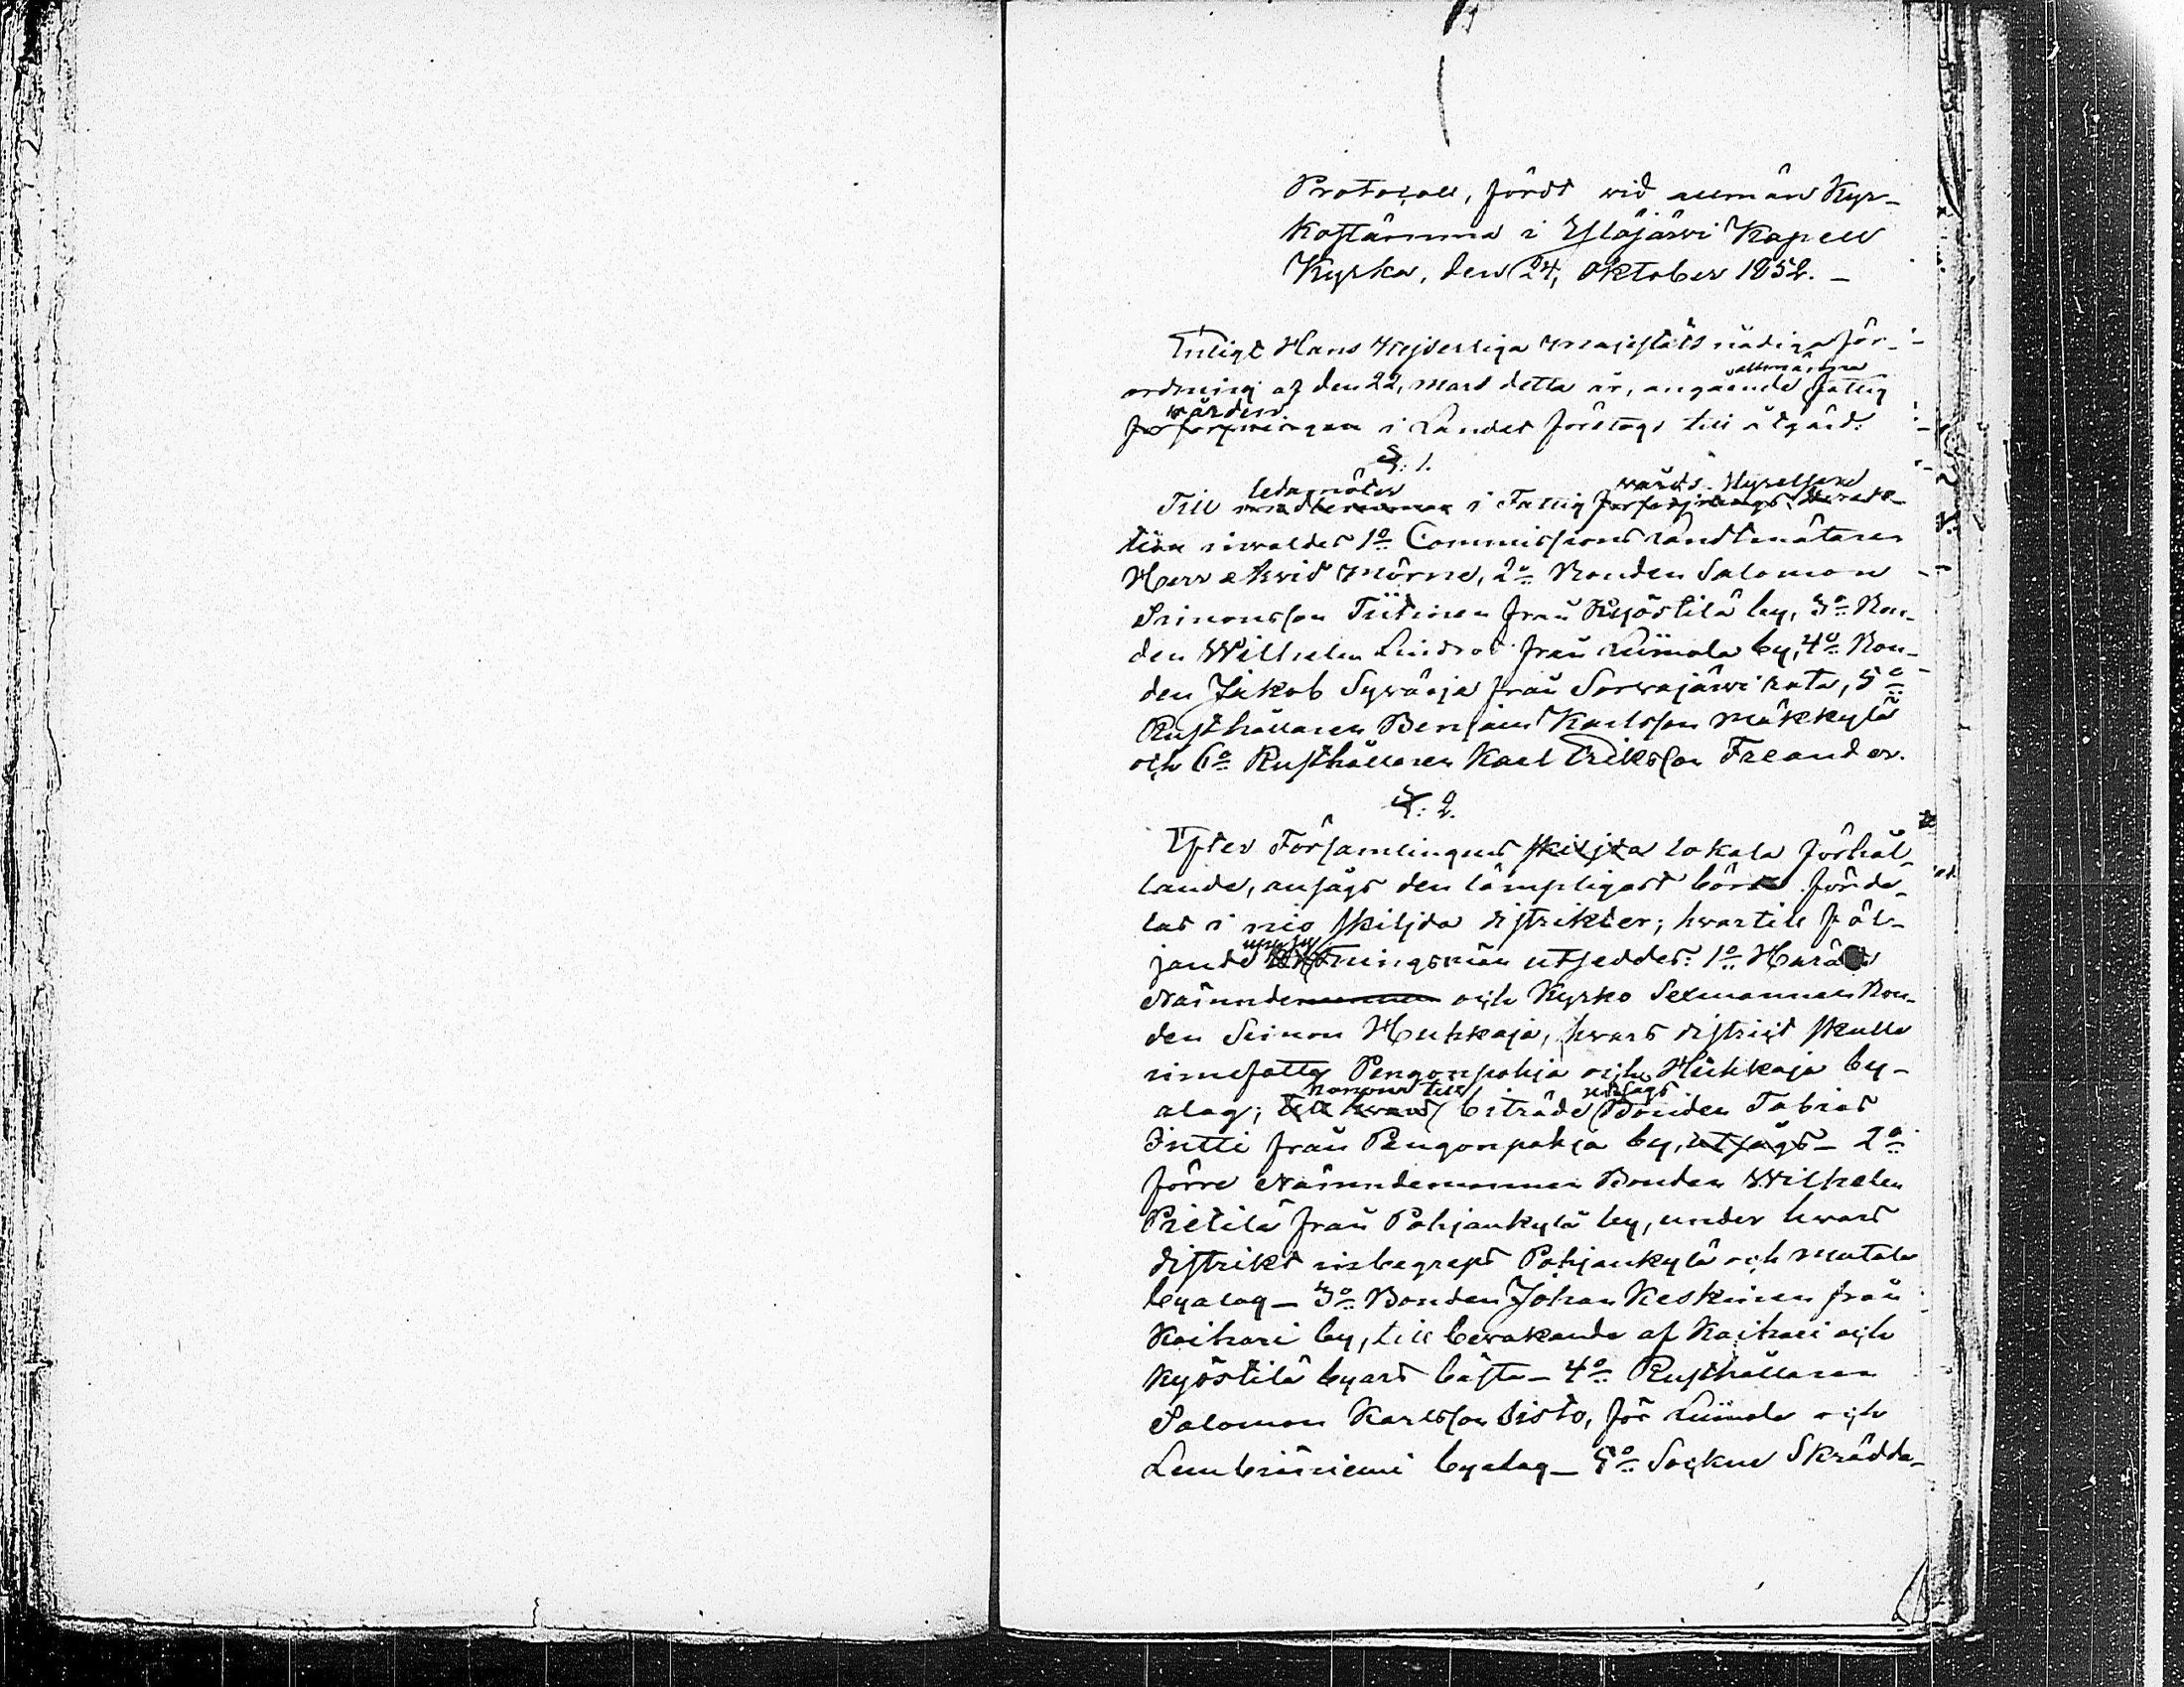 Protocoll, fördt wid allmän Kyr-
kostämma i Ylöjärwi Kapell
Kyrka, den 24, Oktober 1852. -
Enligt Hans Kejserliga Majestäts nådiga för-
allmänna
ordning af den 22, Mars detta år, angående fattig
wården
i Landet företogs till åtgärd.
§: 1.
ledamöter wårds-styrelsen
Till i Fattig försörjnings-
tion inwaldes 1o Commissions Landtmätaren
Herr Arvid Mörne, 2o Bonden Salomon
Simonsson Tiitinen från Kyöstilä by, 3o Bon-
den Wilhelm Lindroo från Siimala by, 4o Bon-
den Jakob Sywäoja från Sorwajärwi kata, 5o
Rusthållaren Benjam Karlsson Mäkkylä
och 6o Rusthållaren Karl Eriksson Freander.
§: 2.
Efter Församlingens skiljda lokala förhål-
lande, ansågs den lämpligast böra förde-
las i nio skiljda distrikter; hwartill föl-
uppsy
jande ningsmän utseddes: 1o Härads
Nämndemannen och Kyrko Sexmannen Bon-
den Simon Huhkaja, hwars distrikt skulle
innefatta Pengonpohja och Huhkaja by-
honom till utsågs
alag; till hwars biträde Bonden Tobias
Intti från Pengonpohja by, utsågs - 2o
förre Nämndemannen Bonden Wilhelm
Pietilä från Pohjankylä by, under hwars
distrikt inbegreps Pohjankylä och Mutala
byalag - 3o Bonden Johan Keskinen från
Kaihari by, till bewakande af Kaihari och
Kyöstilä byars bästa - 4o Rusthållaren
Salomon Karlsson Sisto, för Siimala och
Lembiäniemi byalag - 5o Socknes Skrädda-